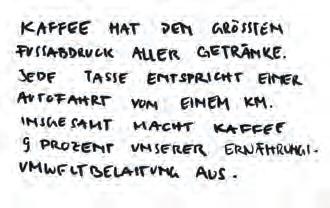 KAFFEE HAT DEN GRÖSSTEM
FUSSABDRUCK ALLER GETRÄNKE.
JEDE TASSE ENTSPRICHT EINER
AUTOFAHRT VON EINEM KM.
INSGESAMT MACHT KAFFEE
9 PROZENT UNSERER ERNÄHRUNGS-
UMWELTBELASTUNG AUS.